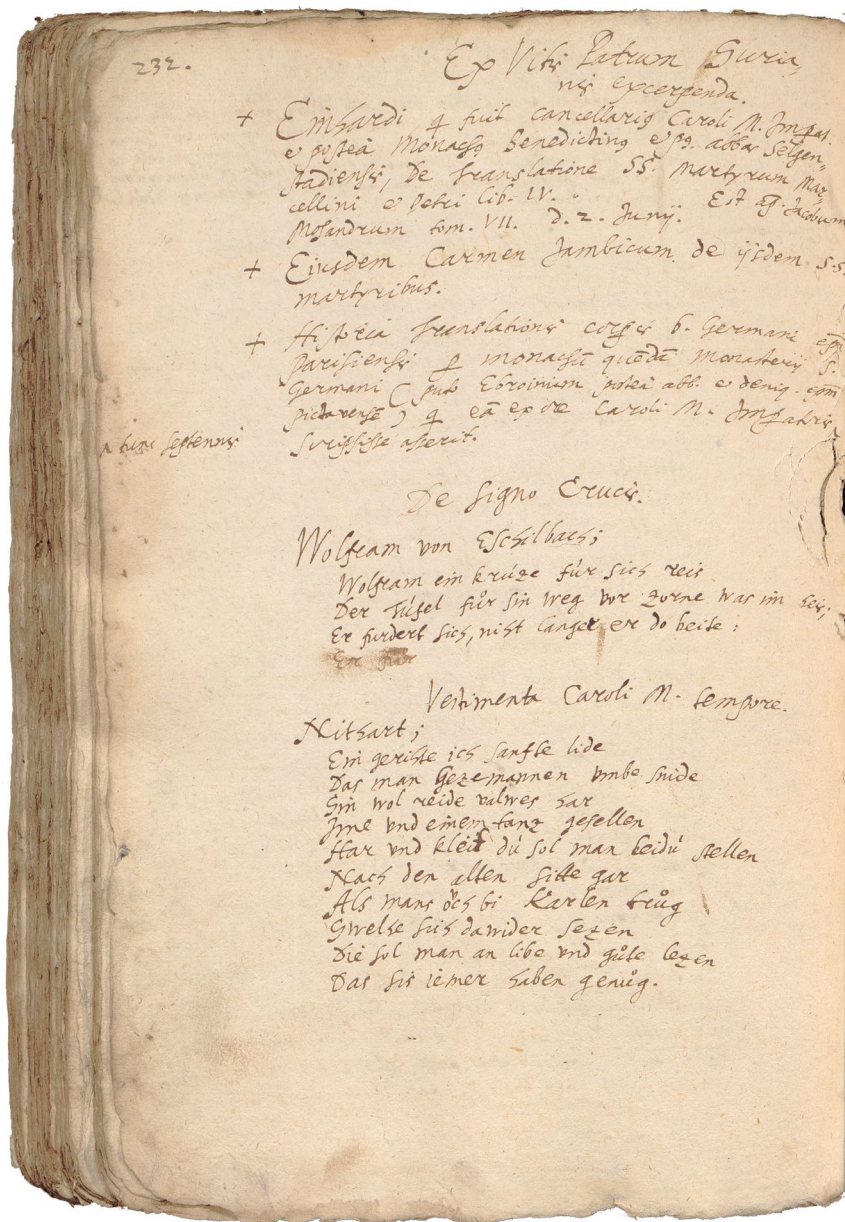 232.
Ex Vitis Patrum Suria,
nis excerpenda.
+ Einhardi q fuit cancellariq Caroli M. Impat.
& postea Monachq Benedictinq & pq. abbas Selgen,,
stadiensis, De translatione SS. Martyrum Mar,,
cellini & Petri lib. IV. Est ap. Jacobum
Mosandrum tom. VII. d. 2. Junij.
+ Eiusdem Carmen Jambicum de ijsdem S.S.
martyribus.
+ Historia translationis corpis b. Germani epi
Parisiensis p monachũ quẽdã monasterij S.
Germani (puto Ebroinium postea abb. & deniq. epm
pictavensẽ) q eã ex ore Caroli M. Impatoris
tunc septennis
scripsisse asserit.
De signo Crucis.
Wolfram von Eschilbach;
Wolfram ein krúze fúr sich reis
Der Túfel fůr sin weg vor zorne was im heis;
Er furdert sich, niht langer er do beite:
Vestimenta Caroli M. tempore.
Nithart;
Ein gerihte ich sanfte lide
Das man Gezemannen vmbe snide
Sin wol reide valwes har
Ime vnd einem tanz gesellen
Har vnd kleit dú sol man beidú stellen
Nach den alten sitte gar
Als mans öch bi Karlen trůg
Swelhe sich dawider sezen
Die sol man an libe vnd gůte lezen
Das sis iemer haben genůg.